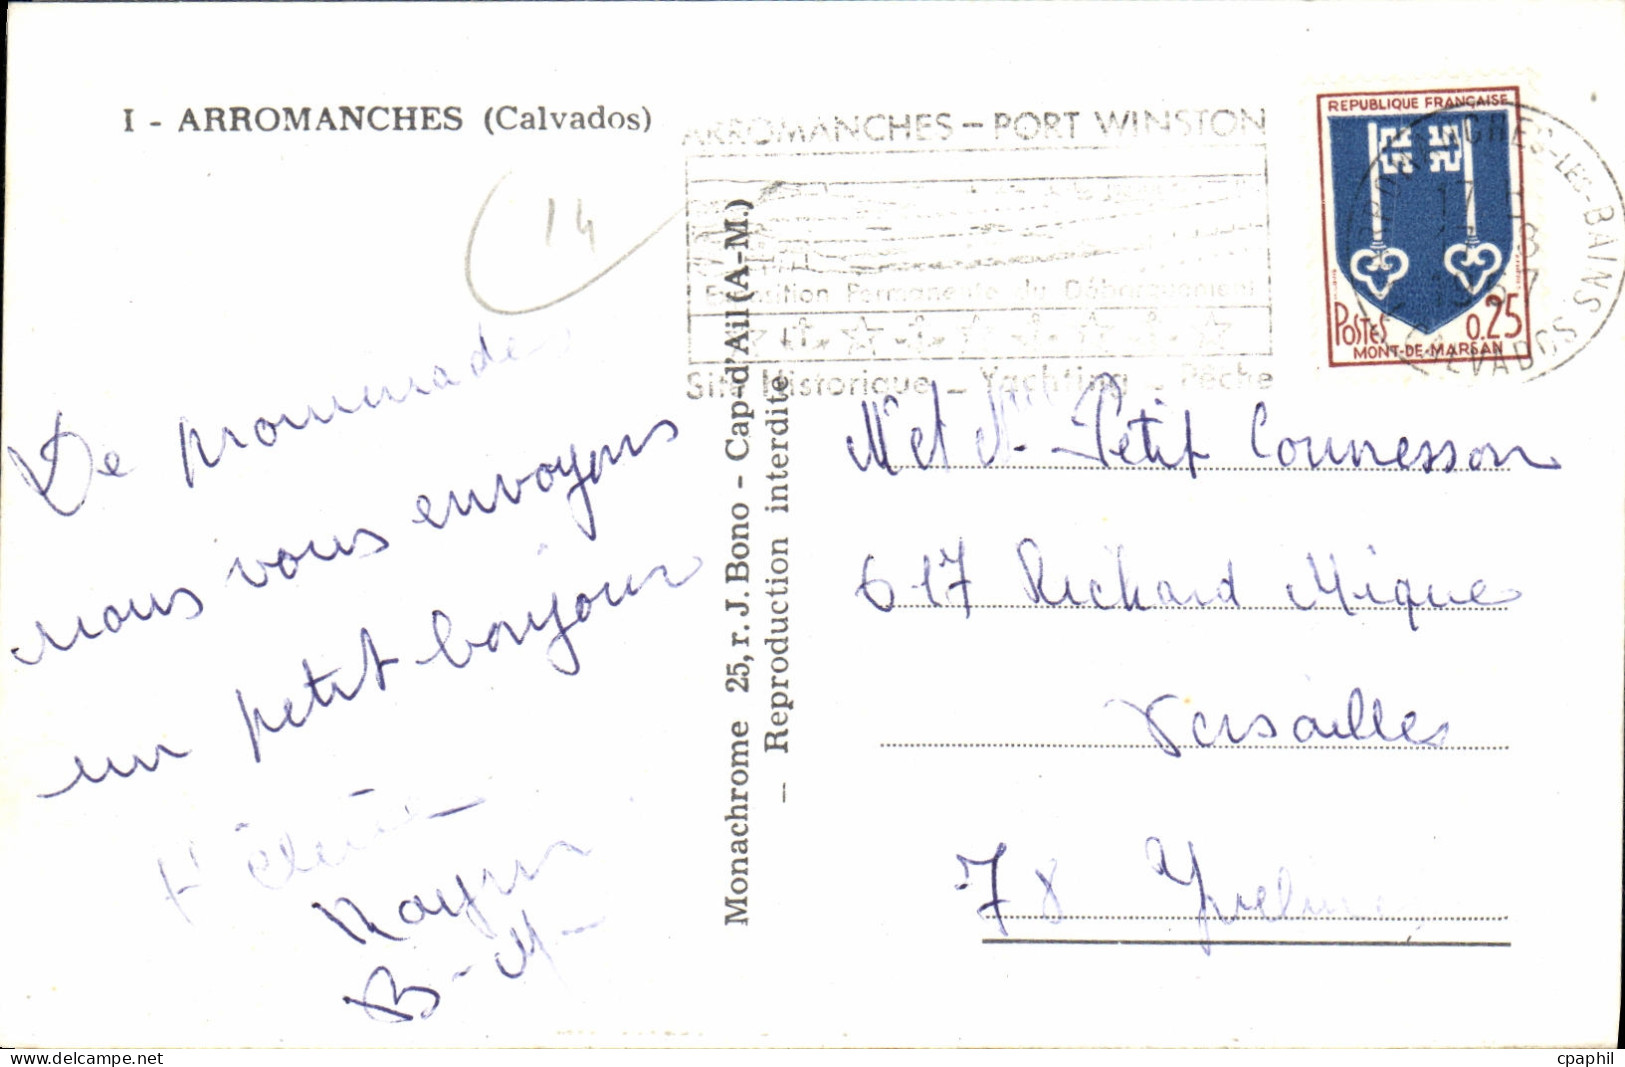 I - ARROMANCHES (Calvados)
14
ARROMANCHES - PORT WINSTON
Exposition Permanente du Débarquement
Site Historique - Yachting - Pêche
REPUBLIQUE FRANÇAISE
POSTES 0.25
MONT-DE-MARSAN
ARROMANCHES-LES-BAINS
CALVADOS
De promenades
nous vous envoyons
un petit bonjour
B-M-
Monachrome 25, r. J. Bono - Cap-d'Ail (A-M.)
- Reproduction interdite
M et M - Petit
617 Richard Mique
Versailles
78 Yvelines
delcampe.net
cpaphil